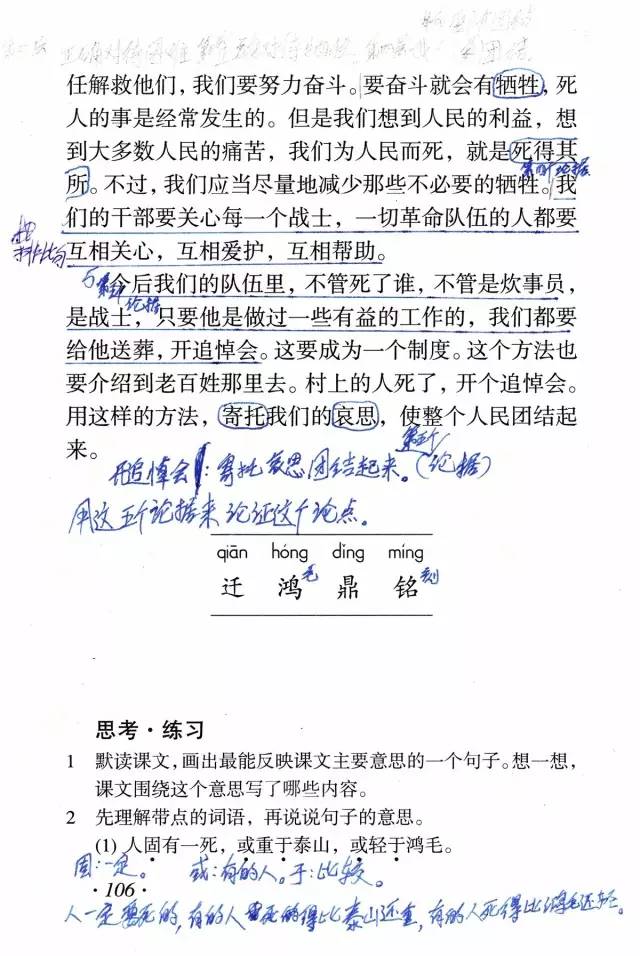 任解救他们，我们要努力奋斗。要奋斗就会有牺牲，死
人的事是经常发生的。但是我们想到人民的利益，想
到大多数人民的痛苦，我们为人民而死，就是死得其
所。不过，我们应当尽量地减少那些不必要的牺牲。我
第四个论据
们的干部要关心每一个战士，一切革命队伍的人都要
互相关心，互相爱护，互相帮助。
排比句
5 今后我们的队伍里，不管死了谁，不管是炊事员，
第五个论据
是战士，只要他是做过一些有益的工作的，我们都要
给他送葬，开追悼会。这要成为一个制度。这个方法也
要介绍到老百姓那里去。村上的人死了，开个追悼会。
用这样的方法，寄托我们的哀思，使整个人民团结起
来。
开追悼会：寄托哀思团结起来。（论据）
第五个
用这五个论据来论证这个论点。
qiān hóng dǐng míng
迁 鸿毛 鼎 铭刻
思考·练习
1 默读课文，画出最能反映课文主要意思的一个句子。想一想，
课文围绕这个意思写了哪些内容。
2 先理解带点的词语，再说说句子的意思。
(1) 人固有一死，或重于泰山，或轻于鸿毛。
固：一定。 或：有的人。于：比较。
·106·
人一定要死的，有的人死的得比泰山还重，有的人死得比鸿毛还轻。